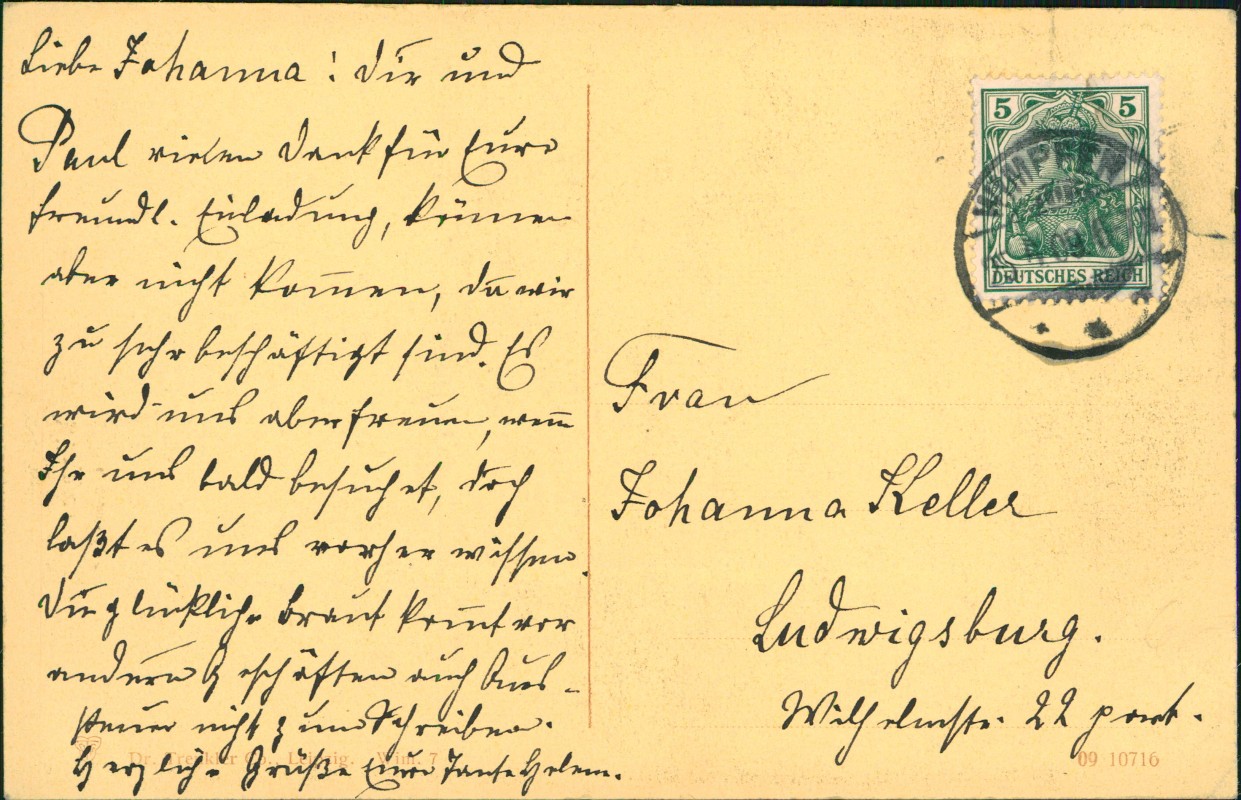 Liebe Johanna! Dir und
Paul vielen Dank für Eure
freundl. Einladung, können
aber nicht kom̄en, da wir
zu sehr beschäftigt sind. Es
wird uns aber freuen, wen̄
Ihr uns bald besuchet, doch
laßt es uns vorher wissen.
Die glückliche Braut kom̄t vor
andern Geschäften auch Aus-
steuer nicht zum Schreiben.
Herzliche Grüße Eure Tante Helene.
5 5
DEUTSCHES REICH
WIMPFEN
09
Frau
Johanna Keller
Ludwigsburg.
Wilhelmstr. 22 part.
Dr. Trenkler Co., Leipzig. Wim. 7
09 10716